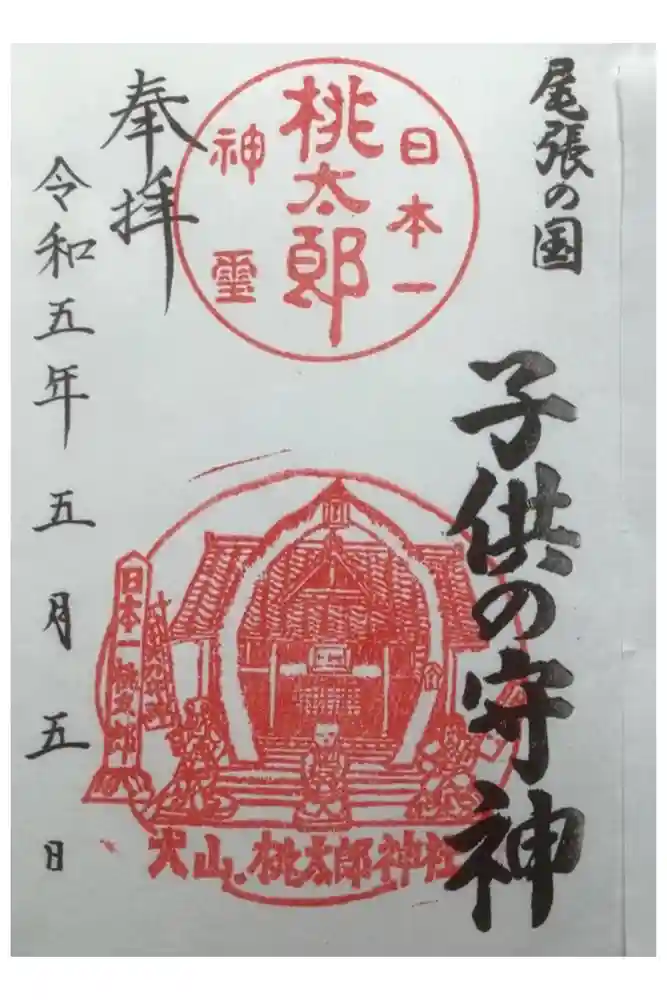 尾張の国
子供の守神
日本一
桃太郎
神霊
奉拝
令和五年五月五日
日本一桃太郎
犬山.桃太郎神社